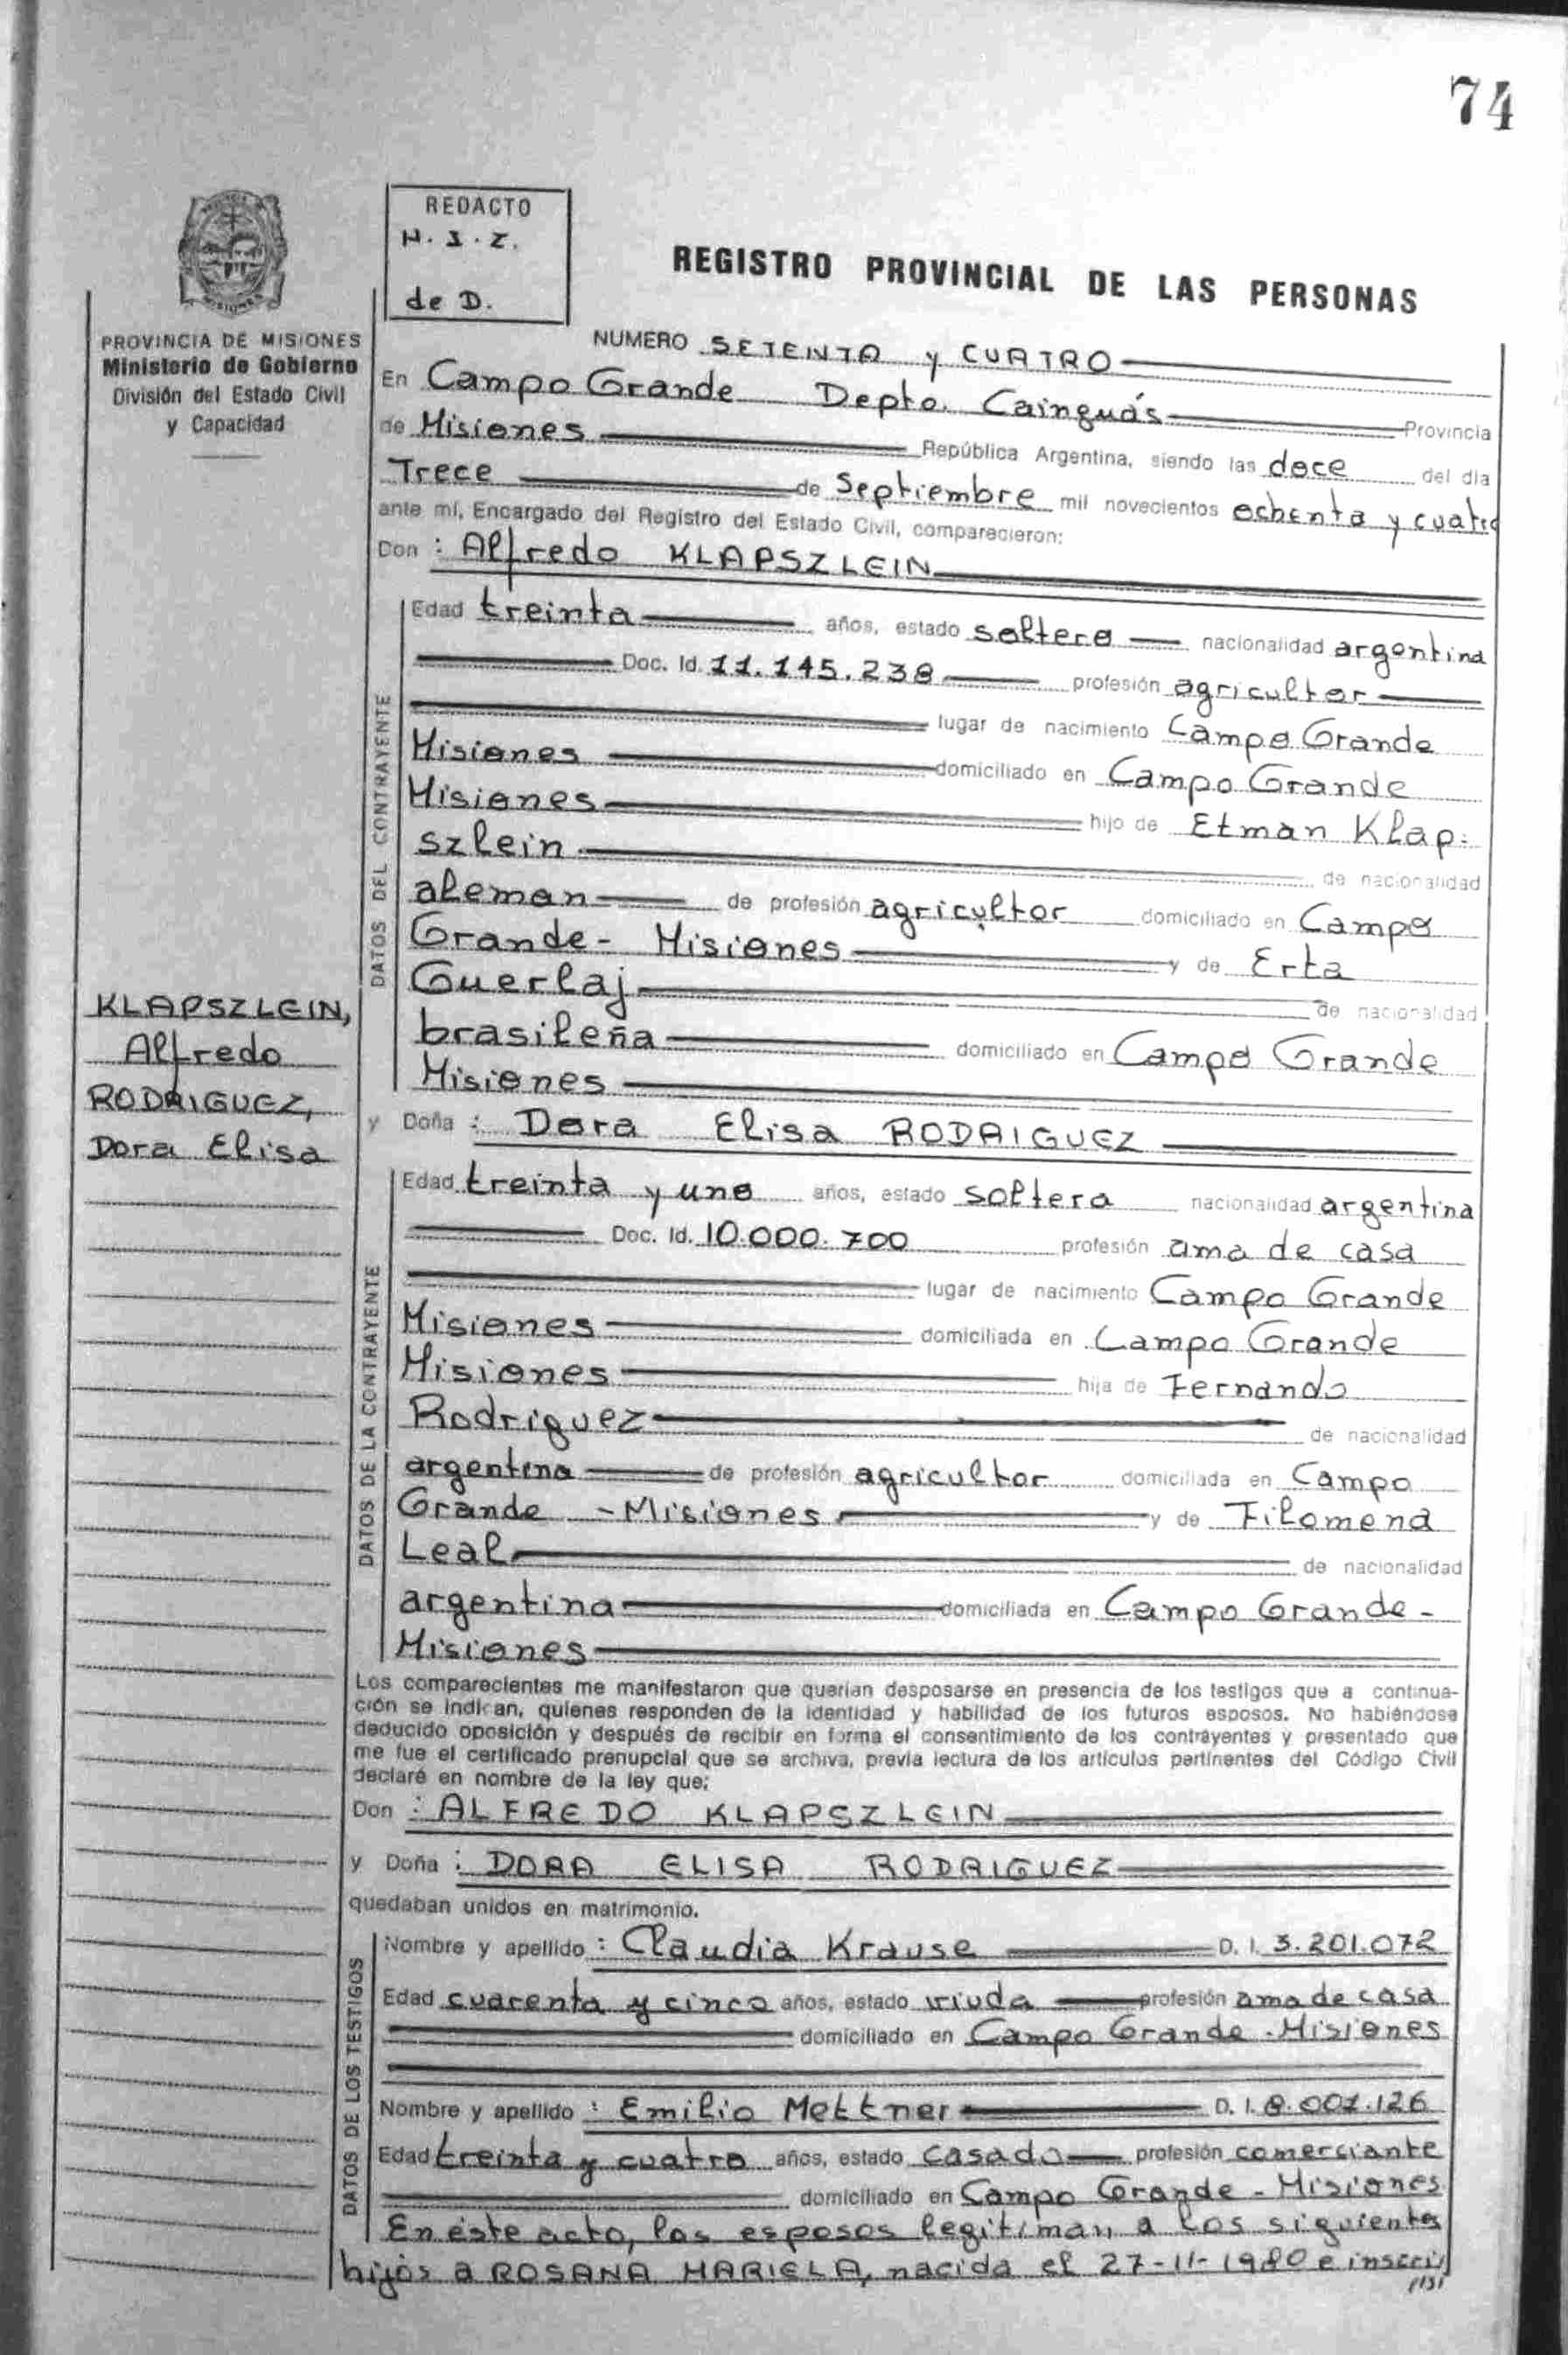 74
REDACTO
H. J. Z.
de D.
REGISTRO PROVINCIAL DE LAS PERSONAS
PROVINCIA DE MISIONES
Ministerio de Gobierno
División del Estado Civil
y Capacidad
NUMERO SETENTA y CUATRO
En Campo Grande Depto. Cainguás Provincia
de Misiones República Argentina, siendo las doce del día
Trece de Septiembre mil novecientos ochenta y cuatro
ante mí, Encargado del Registro del Estado Civil, comparecieron:
Don : Alfredo KLAPSZLEIN
DATOS DEL CONTRAYENTE
Edad treinta años, estado soltero nacionalidad argentina
Doc. Id. 11.145.238 profesión agricultor
lugar de nacimiento Campo Grande
Misiones domiciliado en Campo Grande
Misiones hijo de Etman Klap-
szlein de nacionalidad
aleman de profesión agricultor domiciliado en Campo
Grande - Misiones y de Erta
Guerlaj de nacionalidad
brasileña domiciliado en Campo Grande
Misiones
KLAPSZLEIN,
Alfredo
RODRIGUEZ,
Dora Elisa
y Doña : Dora Elisa RODRIGUEZ
DATOS DE LA CONTRAYENTE
Edad treinta y uno años, estado soltera nacionalidad argentina
Doc. Id. 10.000.700 profesión ama de casa
lugar de nacimiento Campo Grande
Misiones domiciliada en Campo Grande
Misiones hija de Fernando
Rodriguez de nacionalidad
argentina de profesión agricultor domiciliada en Campo
Grande - Misiones y de Filomena
Leal de nacionalidad
argentina domiciliada en Campo Grande -
Misiones
Los comparecientes me manifestaron que querían desposarse en presencia de los testigos que a continua-
ción se indican, quienes responden de la identidad y habilidad de los futuros esposos. No habiéndose
deducido oposición y después de recibir en forma el consentimiento de los contrayentes y presentado que
me fue el certificado prenupcial que se archiva, previa lectura de los artículos pertinentes del Código Civil
declaré en nombre de la ley que:
Don : ALFREDO KLAPSZLEIN
y Doña : DORA ELISA RODRIGUEZ
quedaban unidos en matrimonio.
DATOS DE LOS TESTIGOS
Nombre y apellido : Claudia Krause D. I. 3.201.072
Edad cuarenta y cinco años, estado viuda profesión ama de casa
domiciliado en Campo Grande - Misiones
Nombre y apellido : Emilio Mettner D. I. 8.001.126
Edad treinta y cuatro años, estado casado profesión comerciante
domiciliado en Campo Grande - Misiones
En éste acto, los esposos legitiman a los siguientes
hijos a ROSANA MARIELA, nacida el 27-11-1980 e inscri